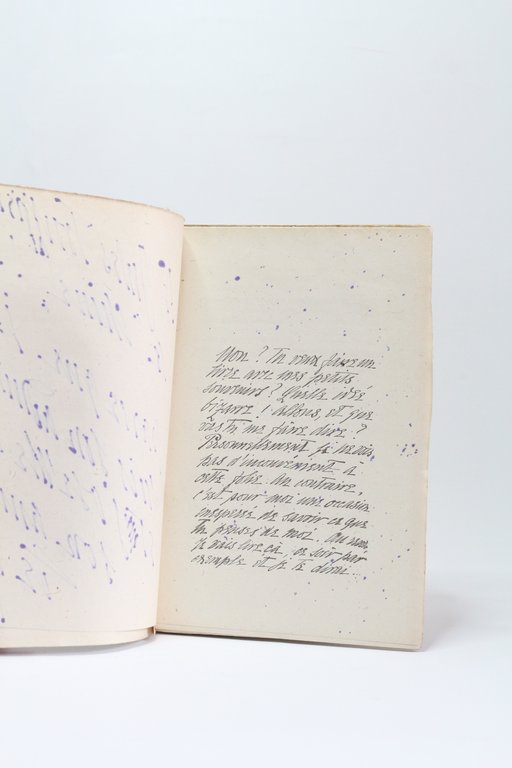 Mon ? Tu veux faire un
livre avec mes petits
souvenirs ? Quelle idée
bizarre ! Allons, et que
vas tu me faire dire ?
Personnellement je ne vois
pas d'inconvénient à
cette folie. Au contraire,
c'est pour moi une occasion
inespérée de savoir ce que
tu penses de moi. Au
je vais lire ça ce soir par
exemple et je te dirai...